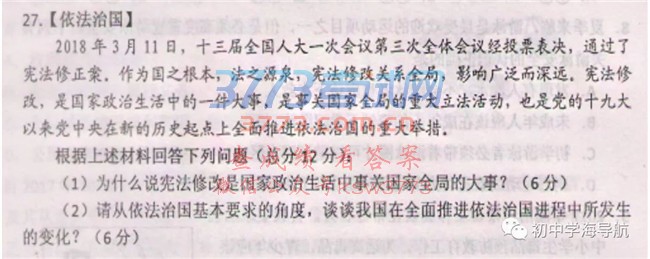 27.【依法治国】
2018 年 3 月 11 日，十三届全国人大一次会议第三次全体会议经投票表决，通过了
宪法修正案。作为国之根本，法之源泉，宪法修改关系全局，影响广泛而深远。宪法修
改，是国家政治生活中的一件大事，是事关国家全局的重大立法活动，也是党的十九大
以来党中央在新的历史起点上全面推进依法治国的重大举措。
根据上述材料回答下列问题（总分12 分）：
（1）为什么说宪法修改是国家政治生活中事关国家全局的大事？（6 分）
（2）请从依法治国基本要求的角度，谈谈我国在全面推进依法治国进程中所发生
的变化？（6 分）
3773考试网
查成绩 看答案
初中学海导航